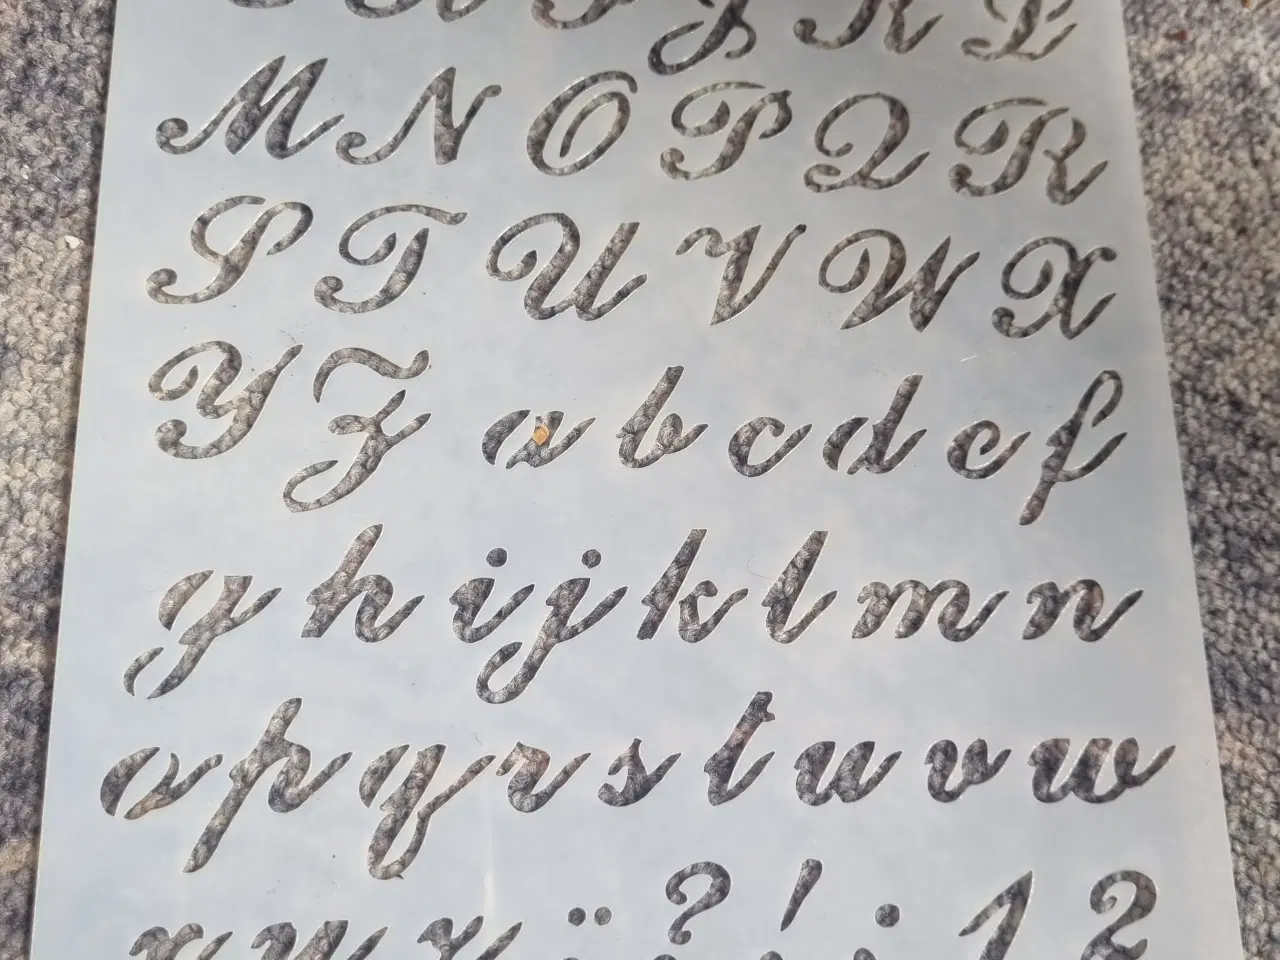 G H I J K L
M N O P Q R
S T U V W X
Y Z a b c d e f
g h i j k l m n
o p q r s t u v w
x y z ¨ ? ! . 1 2